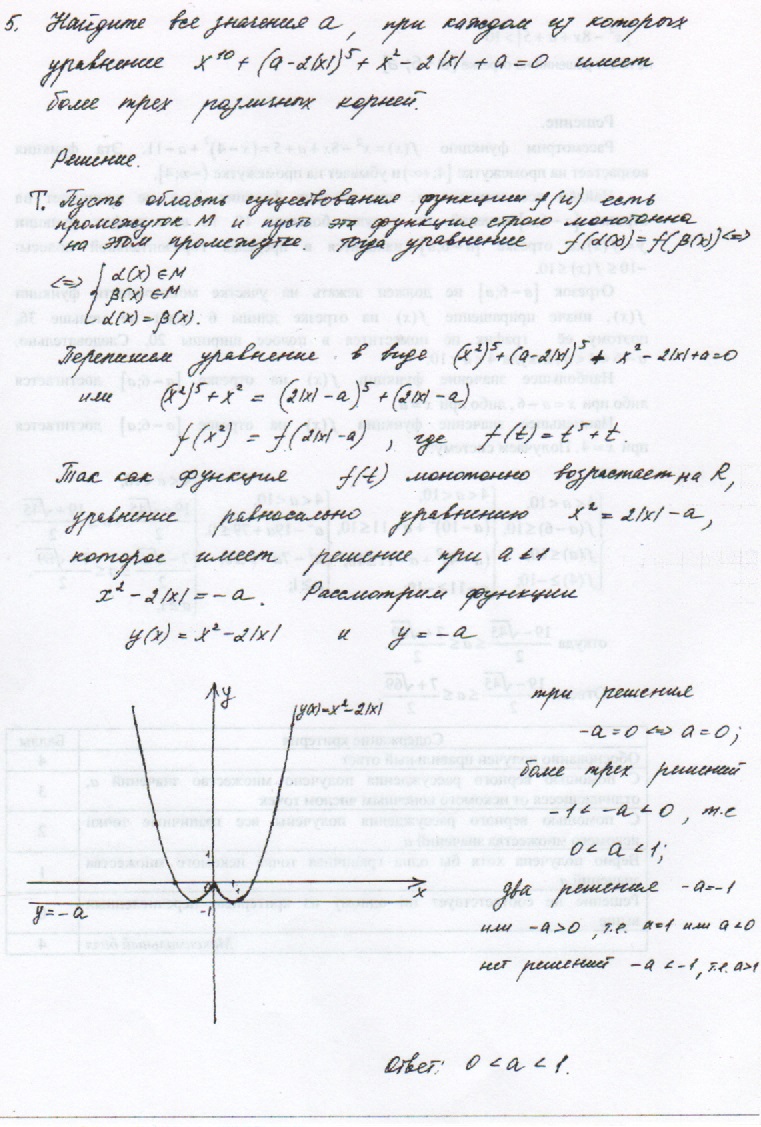 5. Найдите все значения a, при каждом из которых
уравнение x¹⁰ + (a-2|x|)⁵ + x² - 2|x| + a = 0 имеет
более трех различных корней.
Решение.
Т. Пусть область существования функции f(u) есть
промежуток M и пусть эта функция строго монотонна
на этом промежутке. Тогда уравнение f(α(x)) = f(β(x)) <=>
<=> { α(x) ∈ M
β(x) ∈ M
α(x) = β(x).
Перепишем уравнение в виде (x²)⁵ + (a-2|x|)⁵ + x² - 2|x| + a = 0
или (x²)⁵ + x² = (2|x| - a)⁵ + (2|x| - a)
f(x²) = f(2|x| - a), где f(t) = t⁵ + t.
Так как функция f(t) монотонно возрастает на R,
уравнение равносильно уравнению x² = 2|x| - a,
которое имеет решение при a ≤ 1
x² - 2|x| = -a. Рассмотрим функции
y(x) = x² - 2|x| и y = -a
y
y(x) = x² - 2|x|
1
0
1
x
-1
y = -a
три решения
-a = 0 <=> a = 0;
более трех решений
-1 < -a < 0, т.е
0 < a < 1;
два решения -a = -1
или -a > 0, т.е. a = 1 или a < 0
нет решений -a < -1, т.е. a > 1
Ответ: 0 < a < 1.